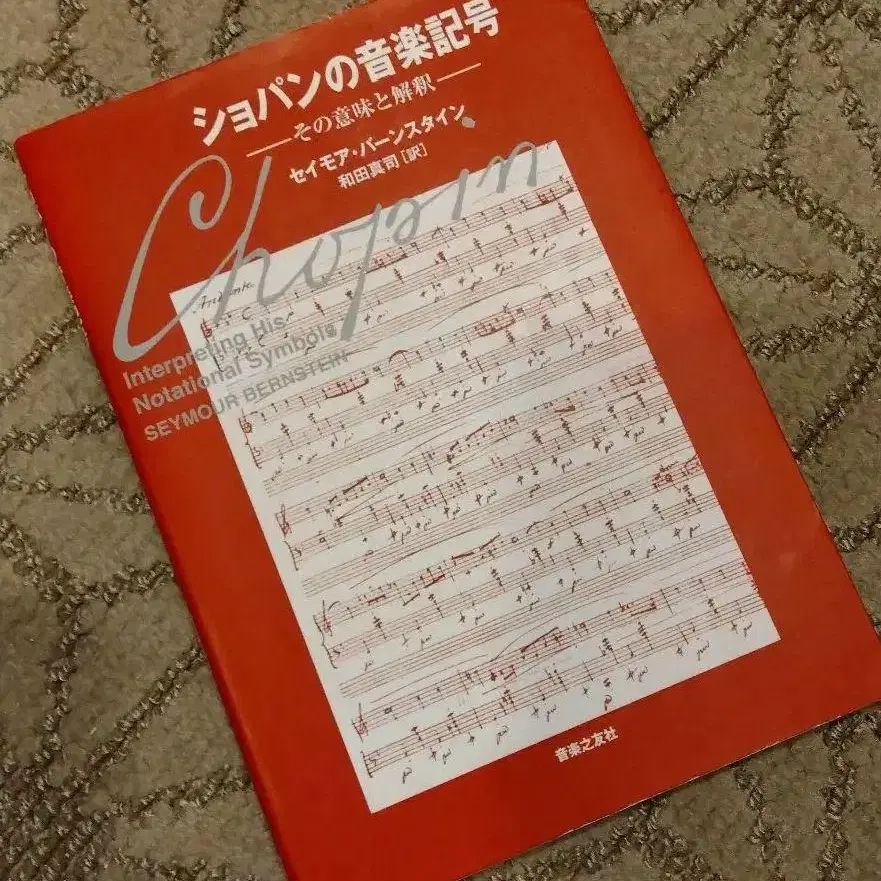 ショパンの音楽記号
―その意味と解釈―
セイモア・バーンスタイン
和田真司[訳]
Chopin
Interpreting His
Notational Symbols
SEYMOUR BERNSTEIN
Andante
音楽之友社